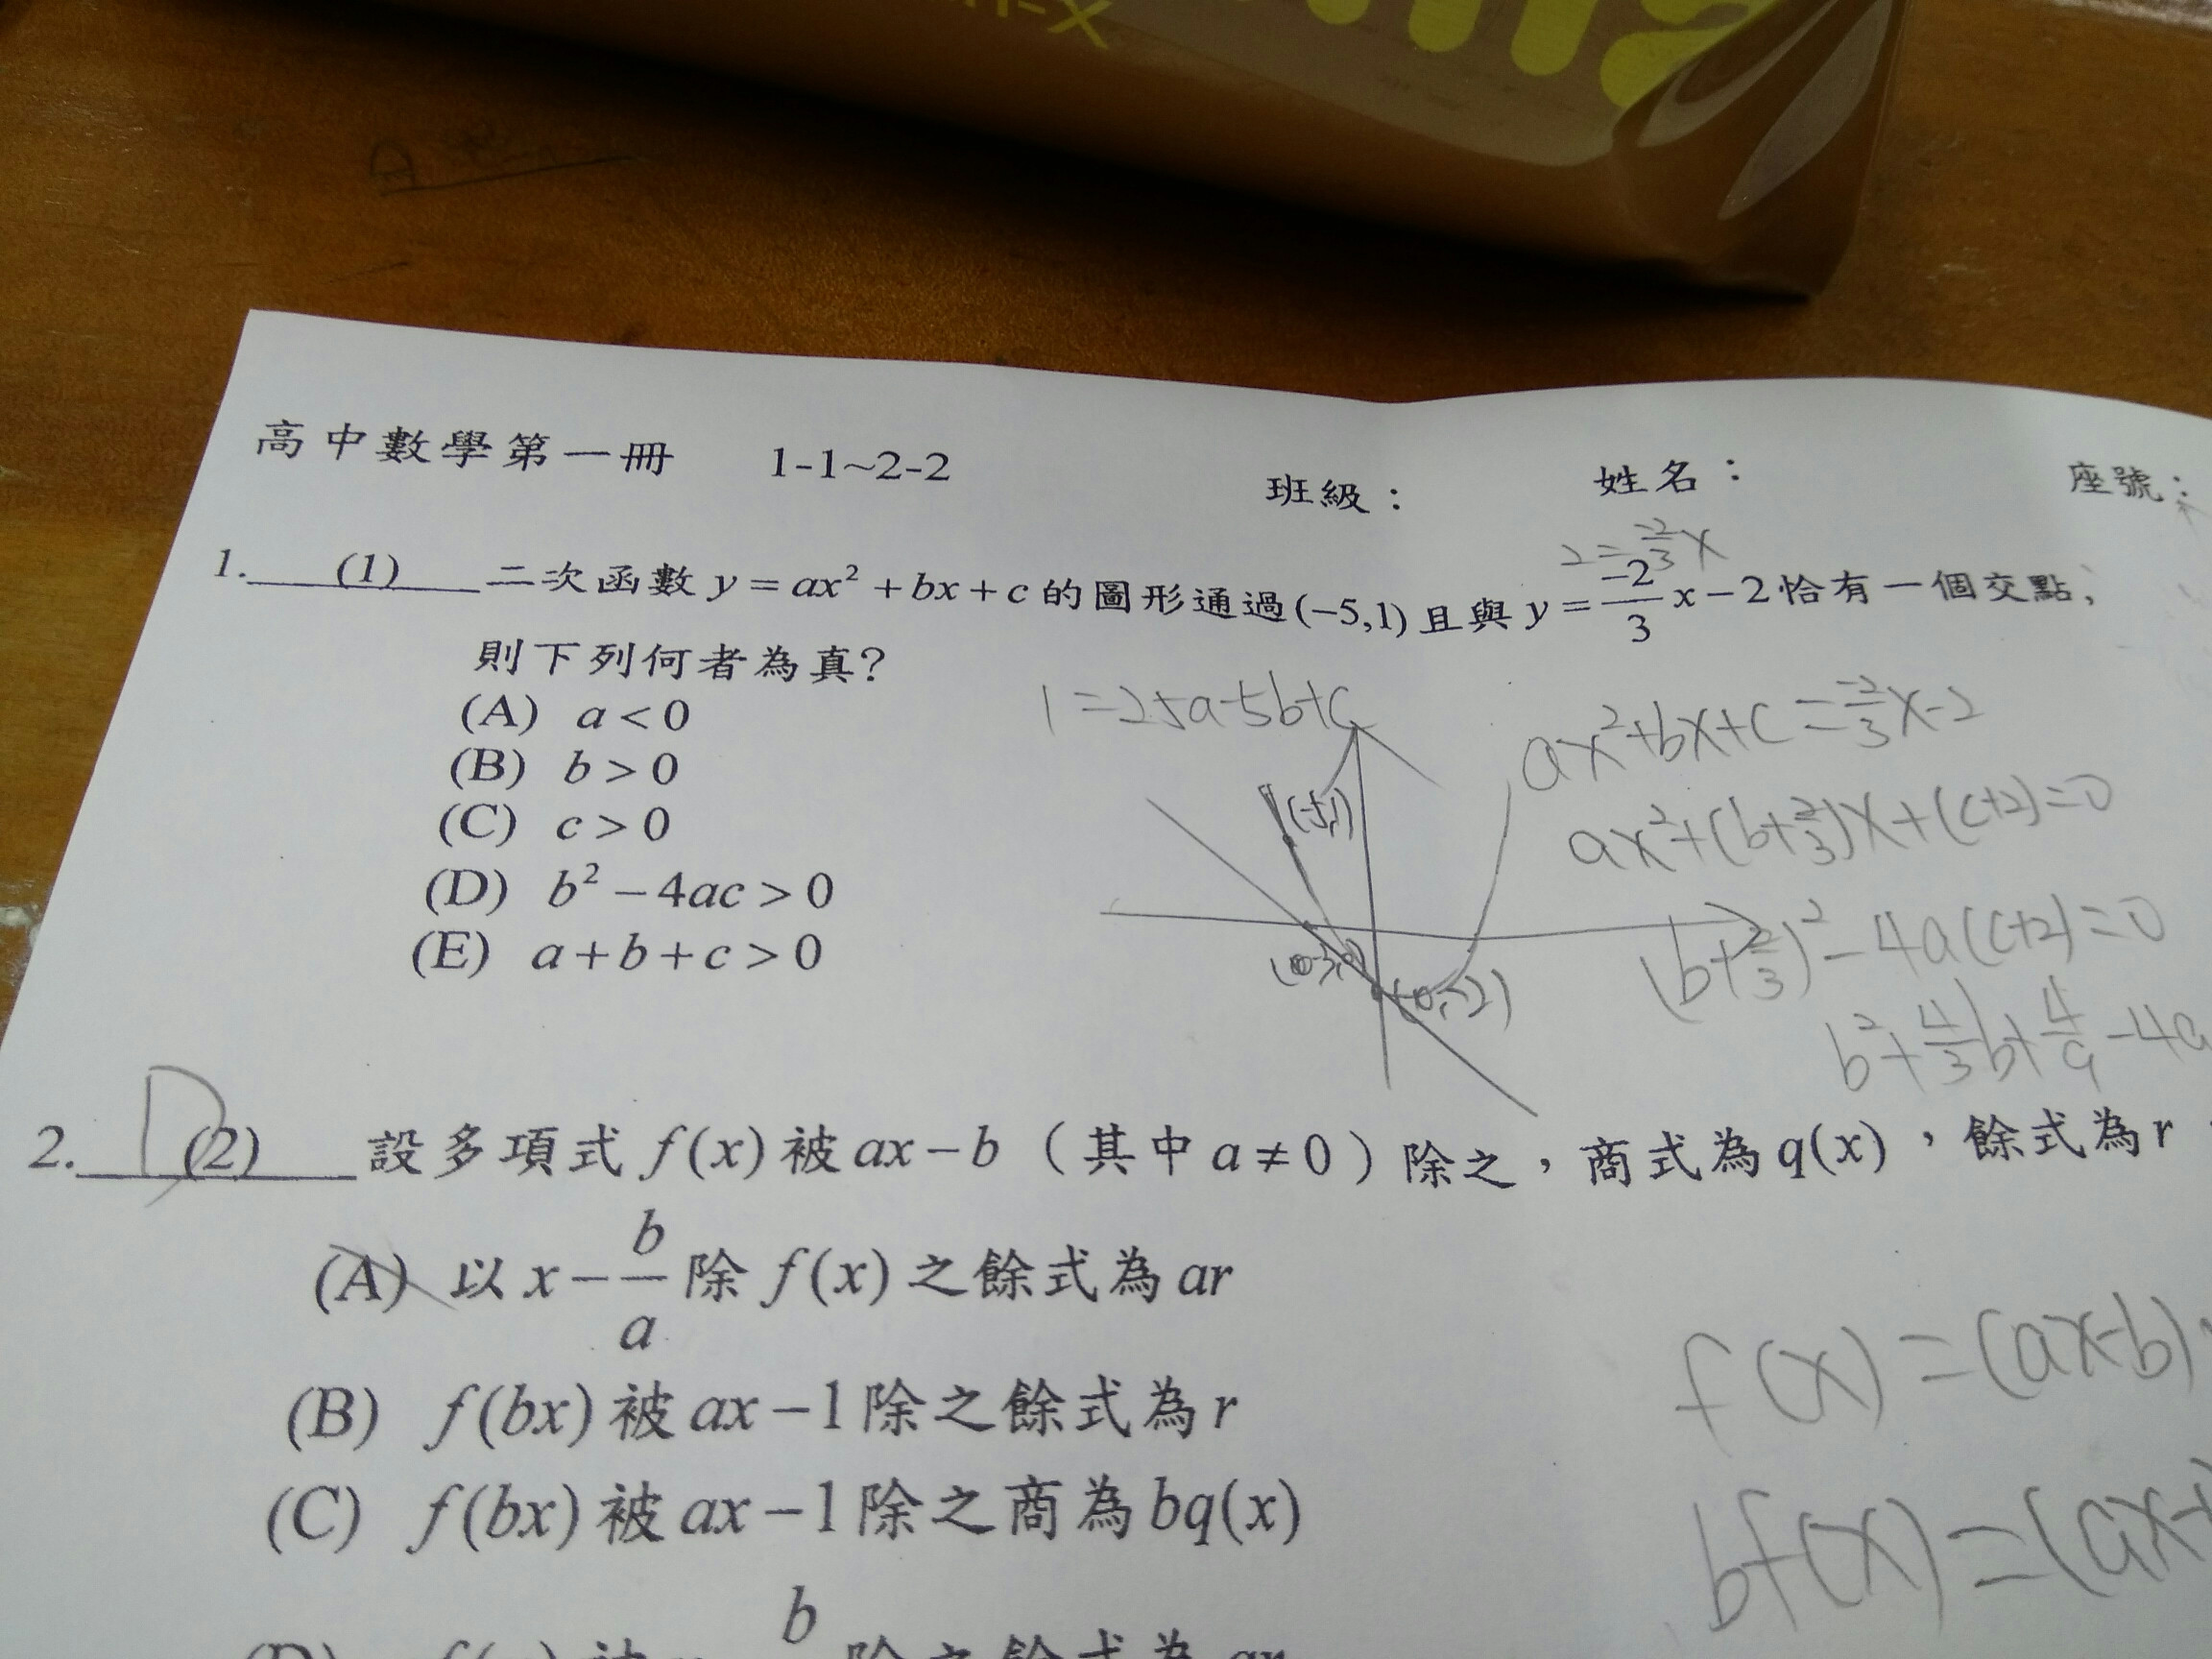 高中數學第一冊 1-1~2-2 班級： 姓名： 座號：
2=-2/3x
1. (1) 二次函數 y = ax² + bx + c 的圖形通過(-5,1)且與 y = -2/3 x - 2 恰有一個交點，
則下列何者為真?
(A) a < 0
(B) b > 0
(C) c > 0
(D) b² - 4ac > 0
(E) a + b + c > 0
1=25a-5b+c
ax²+bx+c=-2/3x-2
ax²+(b+2/3)x+(c+2)=0
(b+2/3)²-4a(c+2)=0
b²+4/3b+4/9-4a
(-5,1)
(-3,0)
(0,-2)
D
2. (2) 設多項式 f(x) 被 ax - b (其中 a ≠ 0) 除之，商式為 q(x)，餘式為 r
(A) 以 x - b/a 除 f(x) 之餘式為 ar
(B) f(bx) 被 ax - 1 除之餘式為 r
(C) f(bx) 被 ax - 1 除之商為 bq(x)
f(x)=(ax-b)
bf(x)=(ax-
b